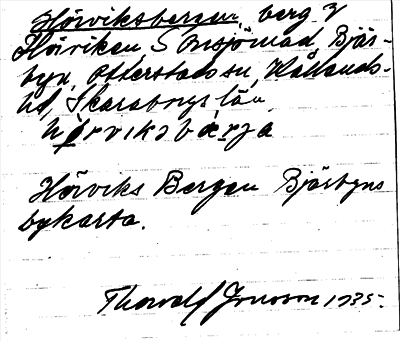 Hörviksbergen, berg V
Hörviken, S Onsjömad, Bjärs-
byn, Otterstads sn, Kållands
hd, Skaraborgs län.
hörviksbærja
Hörviks Bergen Bjärbyns
bykarta.
Thorvald Jonsson 1935.